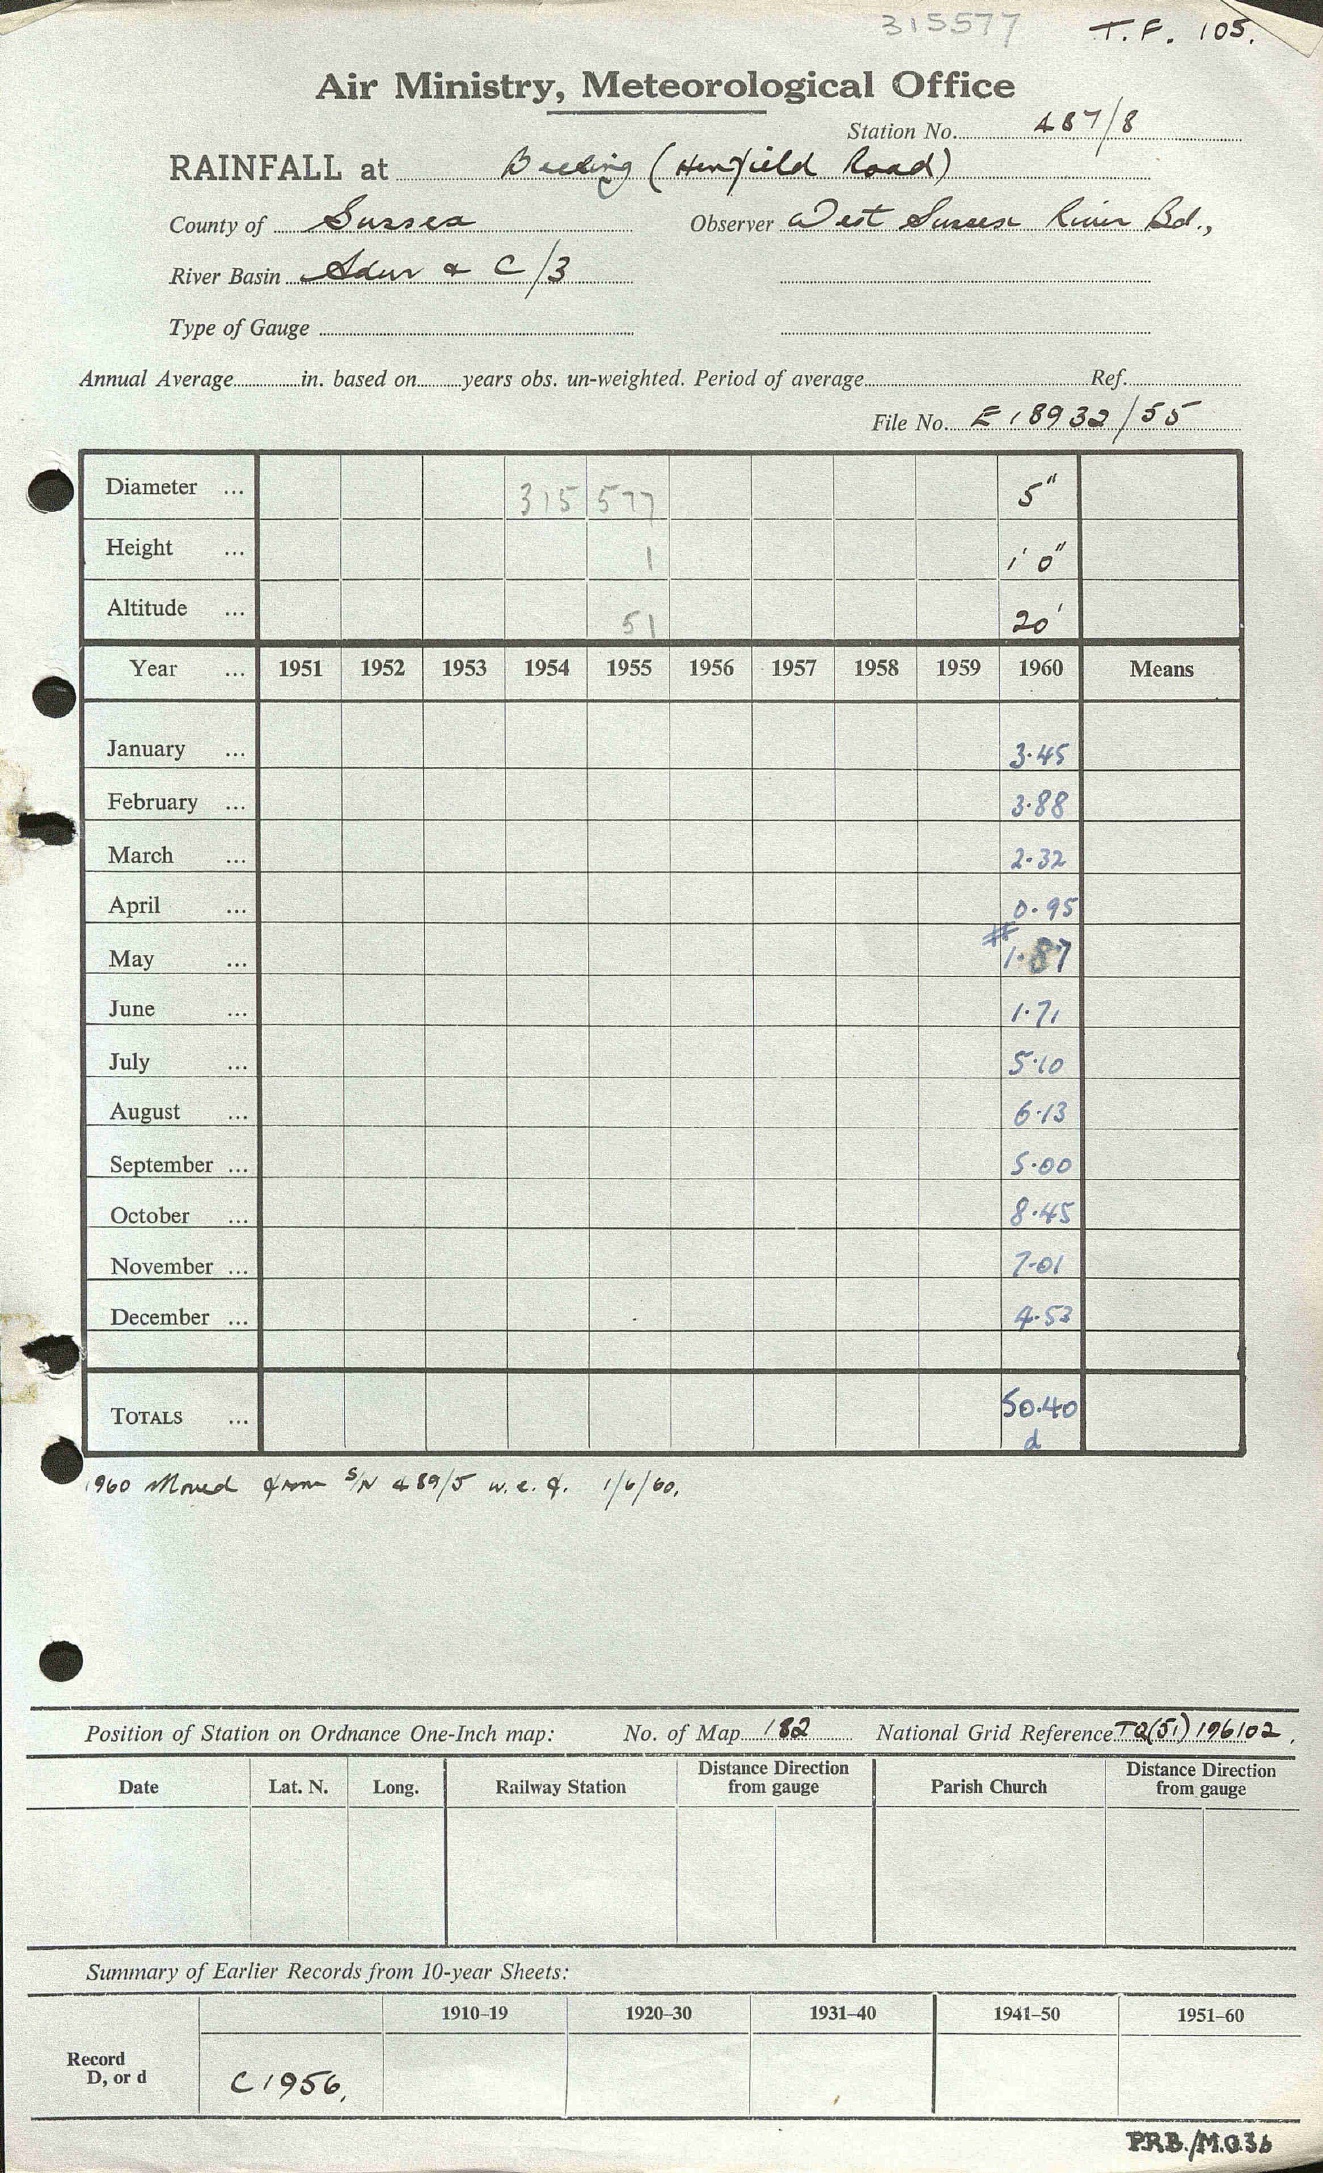 315577 T.F. 105.
Air Ministry, Meteorological Office
Station No. 487/8
RAINFALL at Beeding (Henfield Road)
County of Sussex Observer West Sussex River Bd.,
River Basin Adur & C/3
Type of Gauge
Annual Average in. based on years obs. un-weighted. Period of average Ref.
File No. E18932/55
Diameter ... 315 577 5"
Height ... 1 1' 0"
Altitude ... 51 20'
Year ... 1951 1952 1953 1954 1955 1956 1957 1958 1959 1960 Means
January ... 3.45
February ... 3.88
March ... 2.32
April ... 0.95
May ... # 1.87
June ... 1.71
July ... 5.10
August ... 6.13
September ... 5.00
October ... 8.45
November ... 7.01
December ... 4.53
TOTALS ... 50.40
d
1960 Moved from S/N 489/5 w.e.f. 1/6/60.
Position of Station on Ordnance One-Inch map: No. of Map 182 National Grid Reference TQ(51) 196102.
Date Lat. N. Long. Railway Station Distance Direction from gauge Parish Church Distance Direction from gauge
Summary of Earlier Records from 10-year Sheets:
1910–19 1920–30 1931–40 1941–50 1951–60
Record
D, or d C1956.
P.R.B./M.O.36